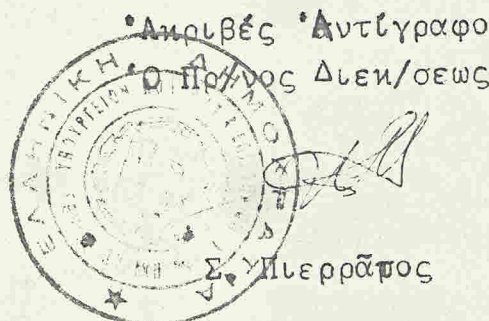 Ἀκριβές Ἀντίγραφο
Ὁ Πρ/νος Διεκ/σεως
ΕΛΛΗΝΙΚΗ ΔΗΜΟΚΡΑΤΙΑ
ΥΠΟΥΡΓΕΙΟΝ
Σ. Πιερρᾶπος